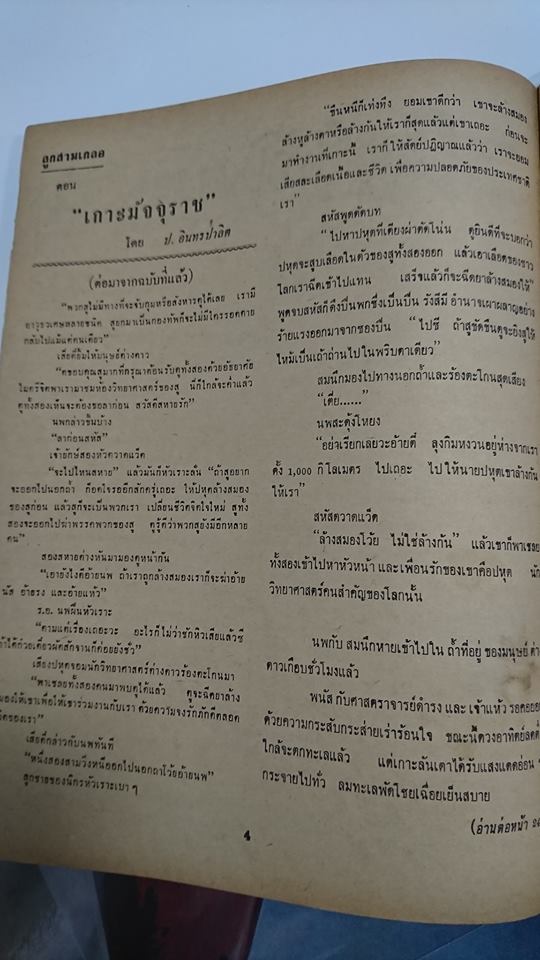 ลูกสามเกลอ
ตอน
"เกาะมัจจุราช"
โดย ป. อินทรปาลิต
(ต่อมาจากฉบับที่แล้ว)
"พวกสูไม่มีทางที่จะจับกุมหรือสังหารตูได้เลย เรามี
อาวุธวิเศษหลายชนิด สูยกมาเป็นกองทัพก็จะไม่มีใครรอดตาย
กลับไปแม้แต่คนเดียว"
เสี่ยตี๋ยิ้มให้มนุษย์ต่างดาว
"ขอบคุณสูมากที่กรุณาต้อนรับตูทั้งสองด้วยอัธยาศัย
ไมตรีจิตพาเรามาชมห้องวิทยาศาสตร์ของสู นี่ก็ใกล้จะค่ำแล้ว
ตูทั้งสองเห็นจะต้องขอลาก่อน สวัสดีสหายรัก"
นพกล่าวขึ้นบ้าง
"ลาก่อนสหัส"
เจ้ายักษ์สองหัวตวาดแว็ด
"จะไปไหนสหาย" แล้วมันก็หัวเราะลั่น "ถ้าสูอยาก
จะออกไปนอกถ้ำ ก็อดใจรออีกสักครู่เถอะ ให้ปหุดล้างสมอง
ของสูก่อน แล้วสูก็จะเป็นพวกเรา เปลี่ยนชีวิตจิตใจใหม่ สูทั้ง
สองจะออกไปฆ่าพรรคพวกของสู ตูรู้ดีว่าพวกสูยังมีอีกหลาย
คน"
สองสหายต่างหันมามองดูหน้ากัน
"เอายังไงดีอ้ายนพ ถ้าเราถูกล้างสมองเราก็จะฆ่าอ้าย
นัส อ้ายรง และอ้ายแห้ว"
ร.อ. นพฝืนหัวเราะ
"ตามแต่เรื่องเถอะวะ อะไรก็ไม่ว่าชักหิวเสียแล้วซี
ได้ก๋วยเตี๋ยวผัดสักจานก็ค่อยยังชั่ว"
เสียงปหุดจอมนักวิทยาศาสตร์ต่างดาวร้องตะโกนมา
"พาเชลยทั้งสองคนมาพบตูได้แล้ว ตูจะฉีดยาล้าง
สมองให้เขาเพื่อให้เขาร่วมงานกับเรา ด้วยความจงรักภักดีตลอด
ชีวิตของเรา"
เสี่ยตี๋กล่าวกับนพทันที
"หนึ่งสองสามวิ่งหนีออกไปนอกถ้ำโว้ยอ้ายนพ"
ลูกชายของนิกรหัวเราะเบา ๆ
"ขืนหนีก็เท่งทึง ยอมเขาดีกว่า เขาจะล้างสมอง
ล้างหูล้างตาหรือล้างก้นให้เราก็สุดแล้วแต่เขาเถอะ ก่อนจะ
มาทำงานที่เกาะนี้ เราก็ให้สัตย์ปฏิญาณแล้วว่า เราจะยอม
เสียสละเลือดเนื้อและชีวิต เพื่อความปลอดภัยของประเทศชาติ
เรา"
สหัสพูดตัดบท
"ไปหาปหุดที่เตียงผ่าตัดโน่น ตูยินดีที่จะบอกว่า
ปหุดจะสูบเลือดในตัวของสูทั้งสองออก แล้วเอาเลือดของชาว
โลกเราฉีดเข้าไปแทน เสร็จแล้วก็จะฉีดยาล้างสมองให้"
พูดจบสหัสก็ดึงปืนพกซึ่งเป็นปืน รังสีมี อำนาจเผาผลาญอย่าง
ร้ายแรงออกมาจากซองปืน "ไปซี ถ้าสูขัดขืนตูจะยิงสูให้
ไหม้เป็นเถ้าถ่านไปในพริบตาเดียว"
สมนึกมองไปทางนอกถ้ำและร้องตะโกนสุดเสียง
"เตี่ย......"
นพสะดุ้งโหยง
"อย่าเรียกเลยวะอ้ายตี๋ ลุงกิมหงวนอยู่ห่างจากเรา
ตั้ง 1,000 กิโลเมตร ไปเถอะ ไปให้นายปหุดเขาล้างก้น
ให้เรา"
สหัสตวาดแว็ด
"ล้างสมองโว้ย ไม่ใช่ล้างก้น" แล้วเขาก็พาเชลย
ทั้งสองเข้าไปหาหัวหน้า และเพื่อนรักของเขาคือปหุด นัก
วิทยาศาสตร์คนสำคัญของโลกนั้น
นพกับ สมนึกหายเข้าไปใน ถ้ำที่อยู่ ของมนุษย์ ต่าง
ดาวเกือบชั่วโมงแล้ว
พนัส กับศาสตราจารย์ดำรง และ เจ้าแห้ว รอคอย
ด้วยความกระสับกระส่ายเร่าร้อนใจ ขณะนี้ดวงอาทิตย์
ใกล้จะตกทะเลแล้ว แต่เกาะลันเตาได้รับแสงแดดอ่อน ๆ
กระจายไปทั่ว ลมทะเลพัดโชยเฉื่อยเย็นสบาย
(อ่านต่อหน้า
4